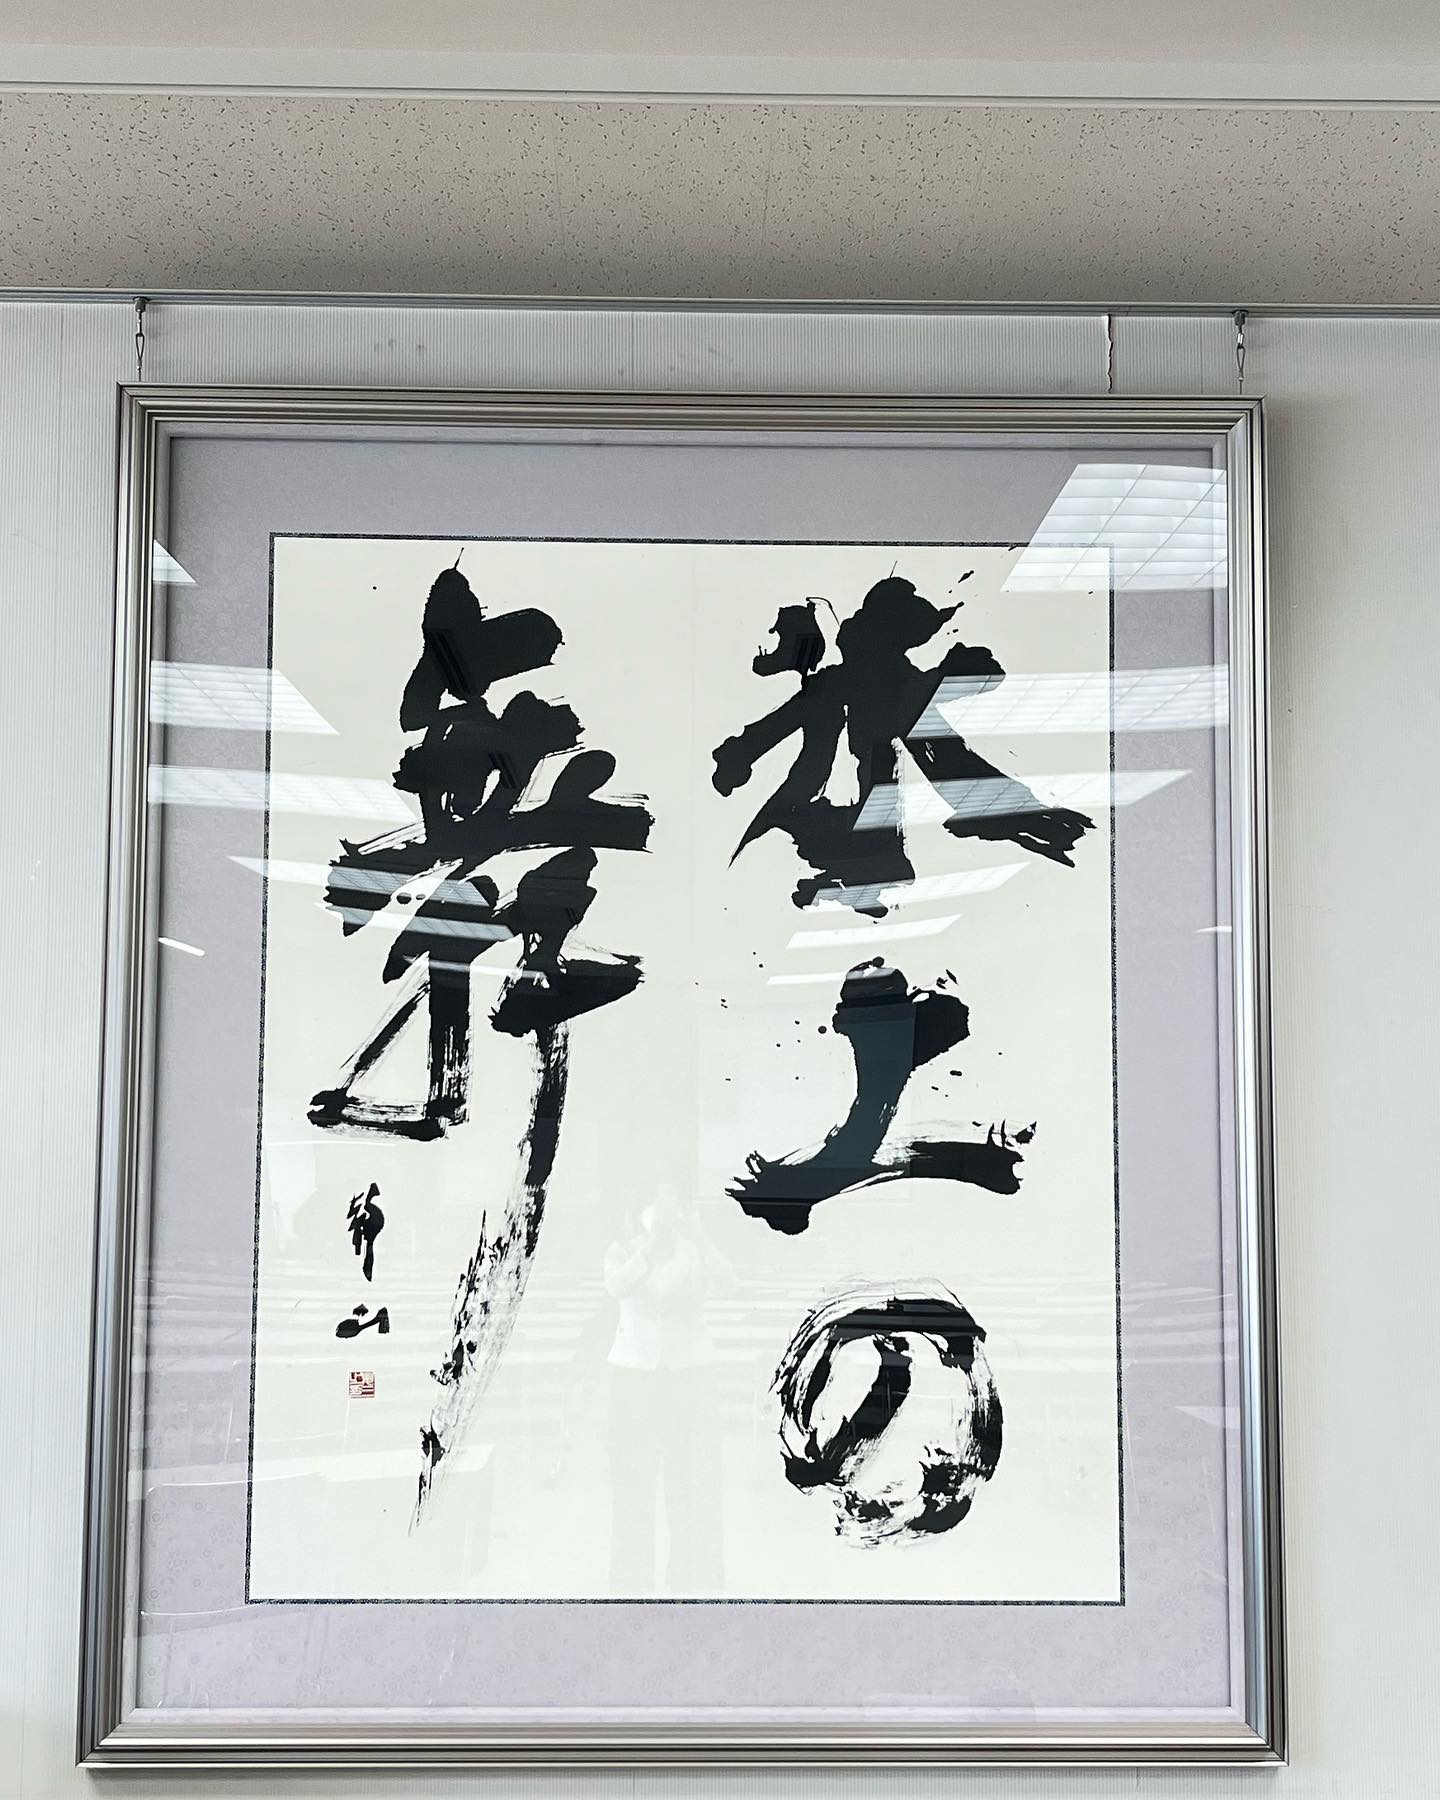 氷上の
舞
静山